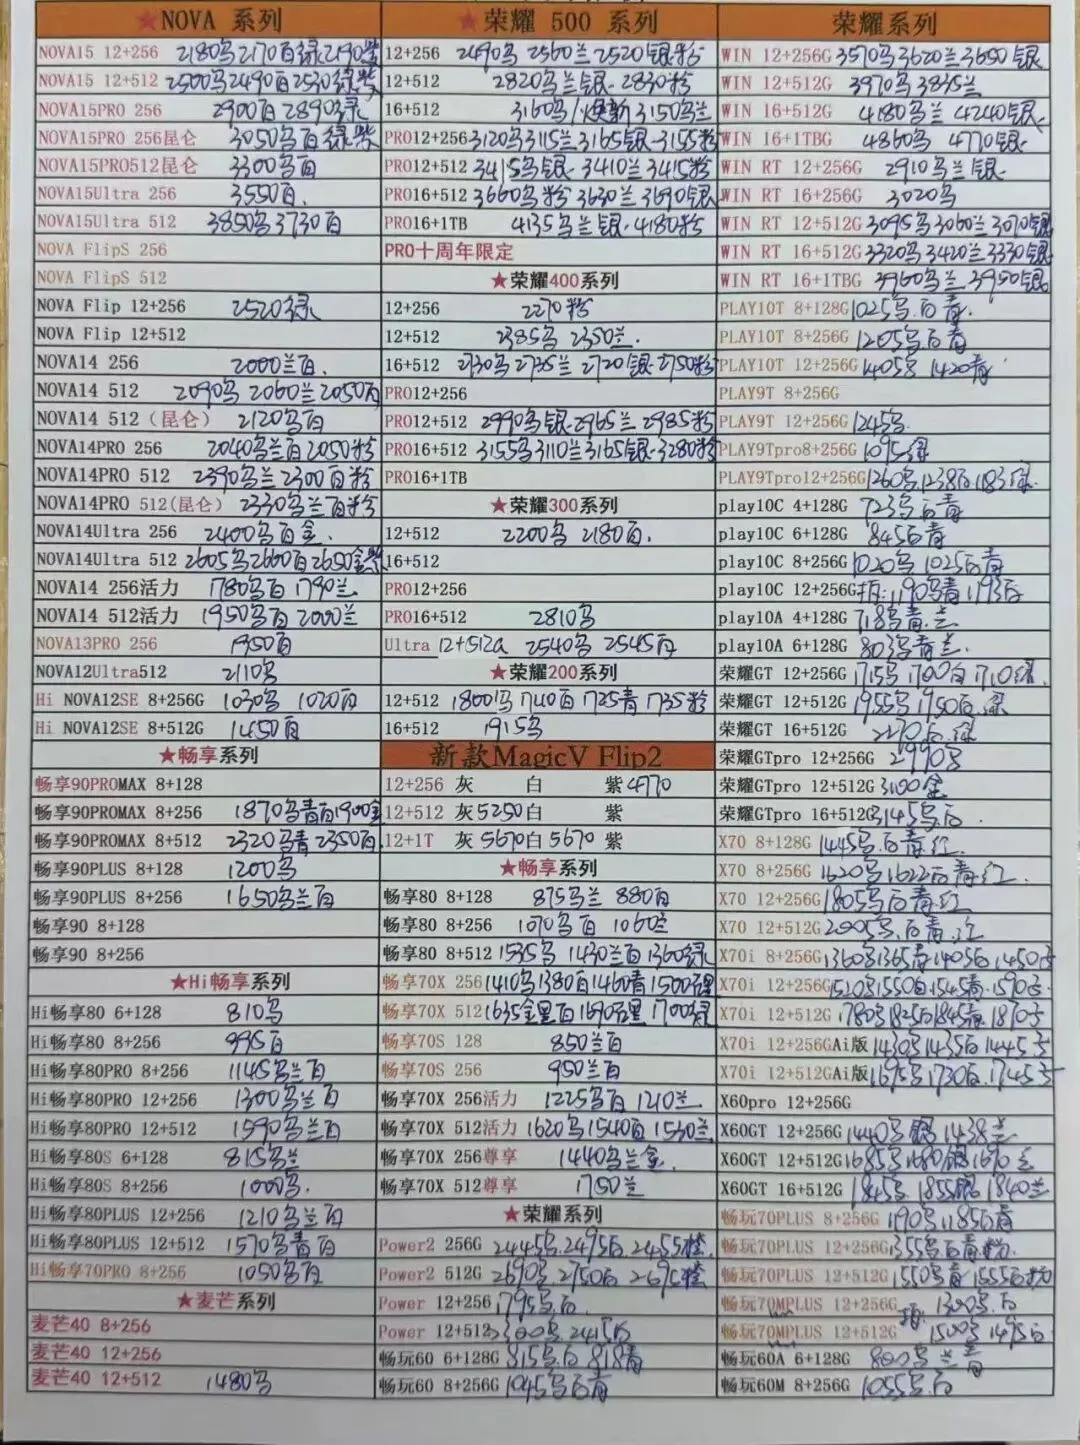 ★NOVA 系列
NOVA15 12+256 2180鸟2170百绿2190紫
NOVA15 12+512 2500鸟2490百2530绿紫
NOVA15PRO 256 2900百2890绿
NOVA15PRO 256昆仑 3050鸟百绿紫
NOVA15PRO512昆仑 3300鸟百
NOVA15Ultra 256 3550百.
NOVA15Ultra 512 3850鸟3730百
NOVA FlipS 256
NOVA FlipS 512
NOVA Flip 12+256 2520绿
NOVA Flip 12+512
NOVA14 256 2000兰百.
NOVA14 512 2090鸟2060兰2050百
NOVA14 512（昆仑） 2120鸟百
NOVA14PRO 256 2040鸟兰百2050粉
NOVA14PRO 512 2390鸟兰2300百粉
NOVA14PRO 512(昆仑) 2330鸟兰百粉
NOVA14Ultra 256 2400鸟百金.
NOVA14Ultra 512 2605鸟2660百2650金紫
NOVA14 256活力 1780鸟百 1790兰
NOVA14 512活力 1950鸟百2000兰
NOVA13PRO 256 1950百
NOVA12Ultra512 2110鸟
Hi NOVA12SE 8+256G 1030鸟 1020百
Hi NOVA12SE 8+512G 1450百
★畅享系列
畅享90PROMAX 8+128
畅享90PROMAX 8+256 1870鸟青百1900金
畅享90PROMAX 8+512 2320鸟青2350百.
畅享90PLUS 8+128 1200鸟
畅享90PLUS 8+256 1650鸟兰百
畅享90 8+128
畅享90 8+256
★Hi畅享系列
Hi畅享80 6+128 810鸟
Hi畅享80 8+256 995百
Hi畅享80PRO 8+256 1145鸟兰百
Hi畅享80PRO 12+256 1300鸟兰百
Hi畅享80PRO 12+512 1590鸟兰百
Hi畅享80S 6+128 815鸟兰
Hi畅享80S 8+256 1000鸟.
Hi畅享80PLUS 12+256 1210鸟兰百
Hi畅享80PLUS 12+512 1570鸟青百
Hi畅享70PRO 8+256 1050鸟百
★麦芒系列
麦芒40 8+256
麦芒40 12+256
麦芒40 12+512 1480鸟
★荣耀 500 系列
12+256 2490鸟2560兰2520银粉
12+512 2820鸟兰银·2830粉
16+512 3160鸟/焕新3150鸟兰
PRO12+256 3120鸟3115兰3165银·3155粉
PRO12+512 3415鸟银·3410兰3415粉
PRO16+512 3660鸟粉3630兰3690银
PRO16+1TB 4135鸟兰银·4180粉
PRO十周年限定
★荣耀400系列
12+256 2270粉
12+512 2385鸟 2350兰.
16+512 2730鸟2735兰2720银·2750粉
PRO12+256
PRO12+512 2990鸟银·2965兰2985粉
PRO16+512 3155鸟3110兰3165银·3280粉
PRO16+1TB
★荣耀300系列
12+512 2200鸟 2180百.
16+512
PRO12+256
PRO16+512 2810鸟
Ultra 12+512a 2540鸟 2545百
★荣耀200系列
12+512 1800鸟1740百1725青1735粉
16+512 1915鸟
新款MagicV Flip2
12+256 灰 白 紫4770
12+512 灰5250白 紫
12+1T 灰5670白5670 紫
★畅享系列
畅享80 8+128 875鸟兰 880百
畅享80 8+256 1070鸟百 1060兰
畅享80 8+512 1535鸟 1430兰百1360绿
畅享70X 256 1410鸟1380百1460青1500
畅享70X 512 1635金黑百1690 1700绿
畅享70S 128 850兰百
畅享70S 256 950兰百
畅享70X 256活力 1225鸟百1210兰
畅享70X 512活力 1620鸟1540百1530兰
畅享70X 256尊享 1440鸟兰金.
畅享70X 512尊享 1750兰
★荣耀系列
Power2 256G 2445鸟.2495百.2455橙.
Power2 512G 2690鸟.2750百 2695橙
Power 12+256 1795鸟百.
Power 12+512 2300鸟.2415百
畅玩60 6+128G 815鸟.百818青
畅玩60 8+256G 1045鸟百青
荣耀系列
WIN 12+256G 3570鸟3620兰3650银
WIN 12+512G 3970鸟3835兰
WIN 16+512G 4180鸟兰4240银
WIN 16+1TBG 4860鸟 4770银·
WIN RT 12+256G 2910鸟兰银·
WIN RT 16+256G 3020鸟
WIN RT 12+512G 3095鸟3060兰3070银
WIN RT 16+512G 3320鸟3420兰3330银
WIN RT 16+1TBG 3960鸟兰3950银
PLAY10T 8+128G 1025鸟.百青.
PLAY10T 8+256G 1205鸟百青
PLAY10T 12+256G 1405鸟 1420青
PLAY9T 8+256G
PLAY9T 12+256G 1245鸟
PLAY9Tpro8+256G 1095绿
PLAY9Tpro12+256G 1260鸟1238百1183绿
play10C 4+128G 723鸟百青
play10C 6+128G 845百青
play10C 8+256G 1020鸟 1025百青
play10C 12+256G 1190鸟青1193百
play10A 4+128G 718鸟青.兰
play10A 6+128G 803鸟青兰.
荣耀GT 12+256G 1715鸟1700百1710绿.
荣耀GT 12+512G 1955鸟1950百.绿
荣耀GT 16+512G 2270百.绿
荣耀GTpro 12+256G 2990鸟
荣耀GTpro 12+512G 3100金
荣耀GTpro 16+512G 3145鸟百
X70 8+128G 1445鸟.百青.红.
X70 8+256G 1620鸟1622百青红.
X70 12+256G 1805鸟百青.红
X70 12+512G 2005鸟.百青.红
X70i 8+256G 1360鸟1365青1405百1450
X70i 12+256G 1520鸟1550百1545青·1590
X70i 12+512G 1780鸟1825百1845青1870
X70i 12+256GAi版 1430鸟1435百1445
X70i 12+512GAi版 1695鸟1730百.1745
X60pro 12+256G
X60GT 12+256G 1440鸟 银 1438兰
X60GT 12+512G 1685鸟1680银1670兰
X60GT 16+512G 1845鸟1855银1840兰
畅玩70PLUS 8+256G 1190鸟1185百青
畅玩70PLUS 12+256G 1355鸟百青·粉.
畅玩70PLUS 12+512G 1550鸟青1555百粉
畅玩70MPLUS 12+256G 1300鸟.百
畅玩70MPLUS 12+512G 1500鸟1495百
畅玩60A 6+128G 800鸟兰青
畅玩60M 8+256G 1055鸟百